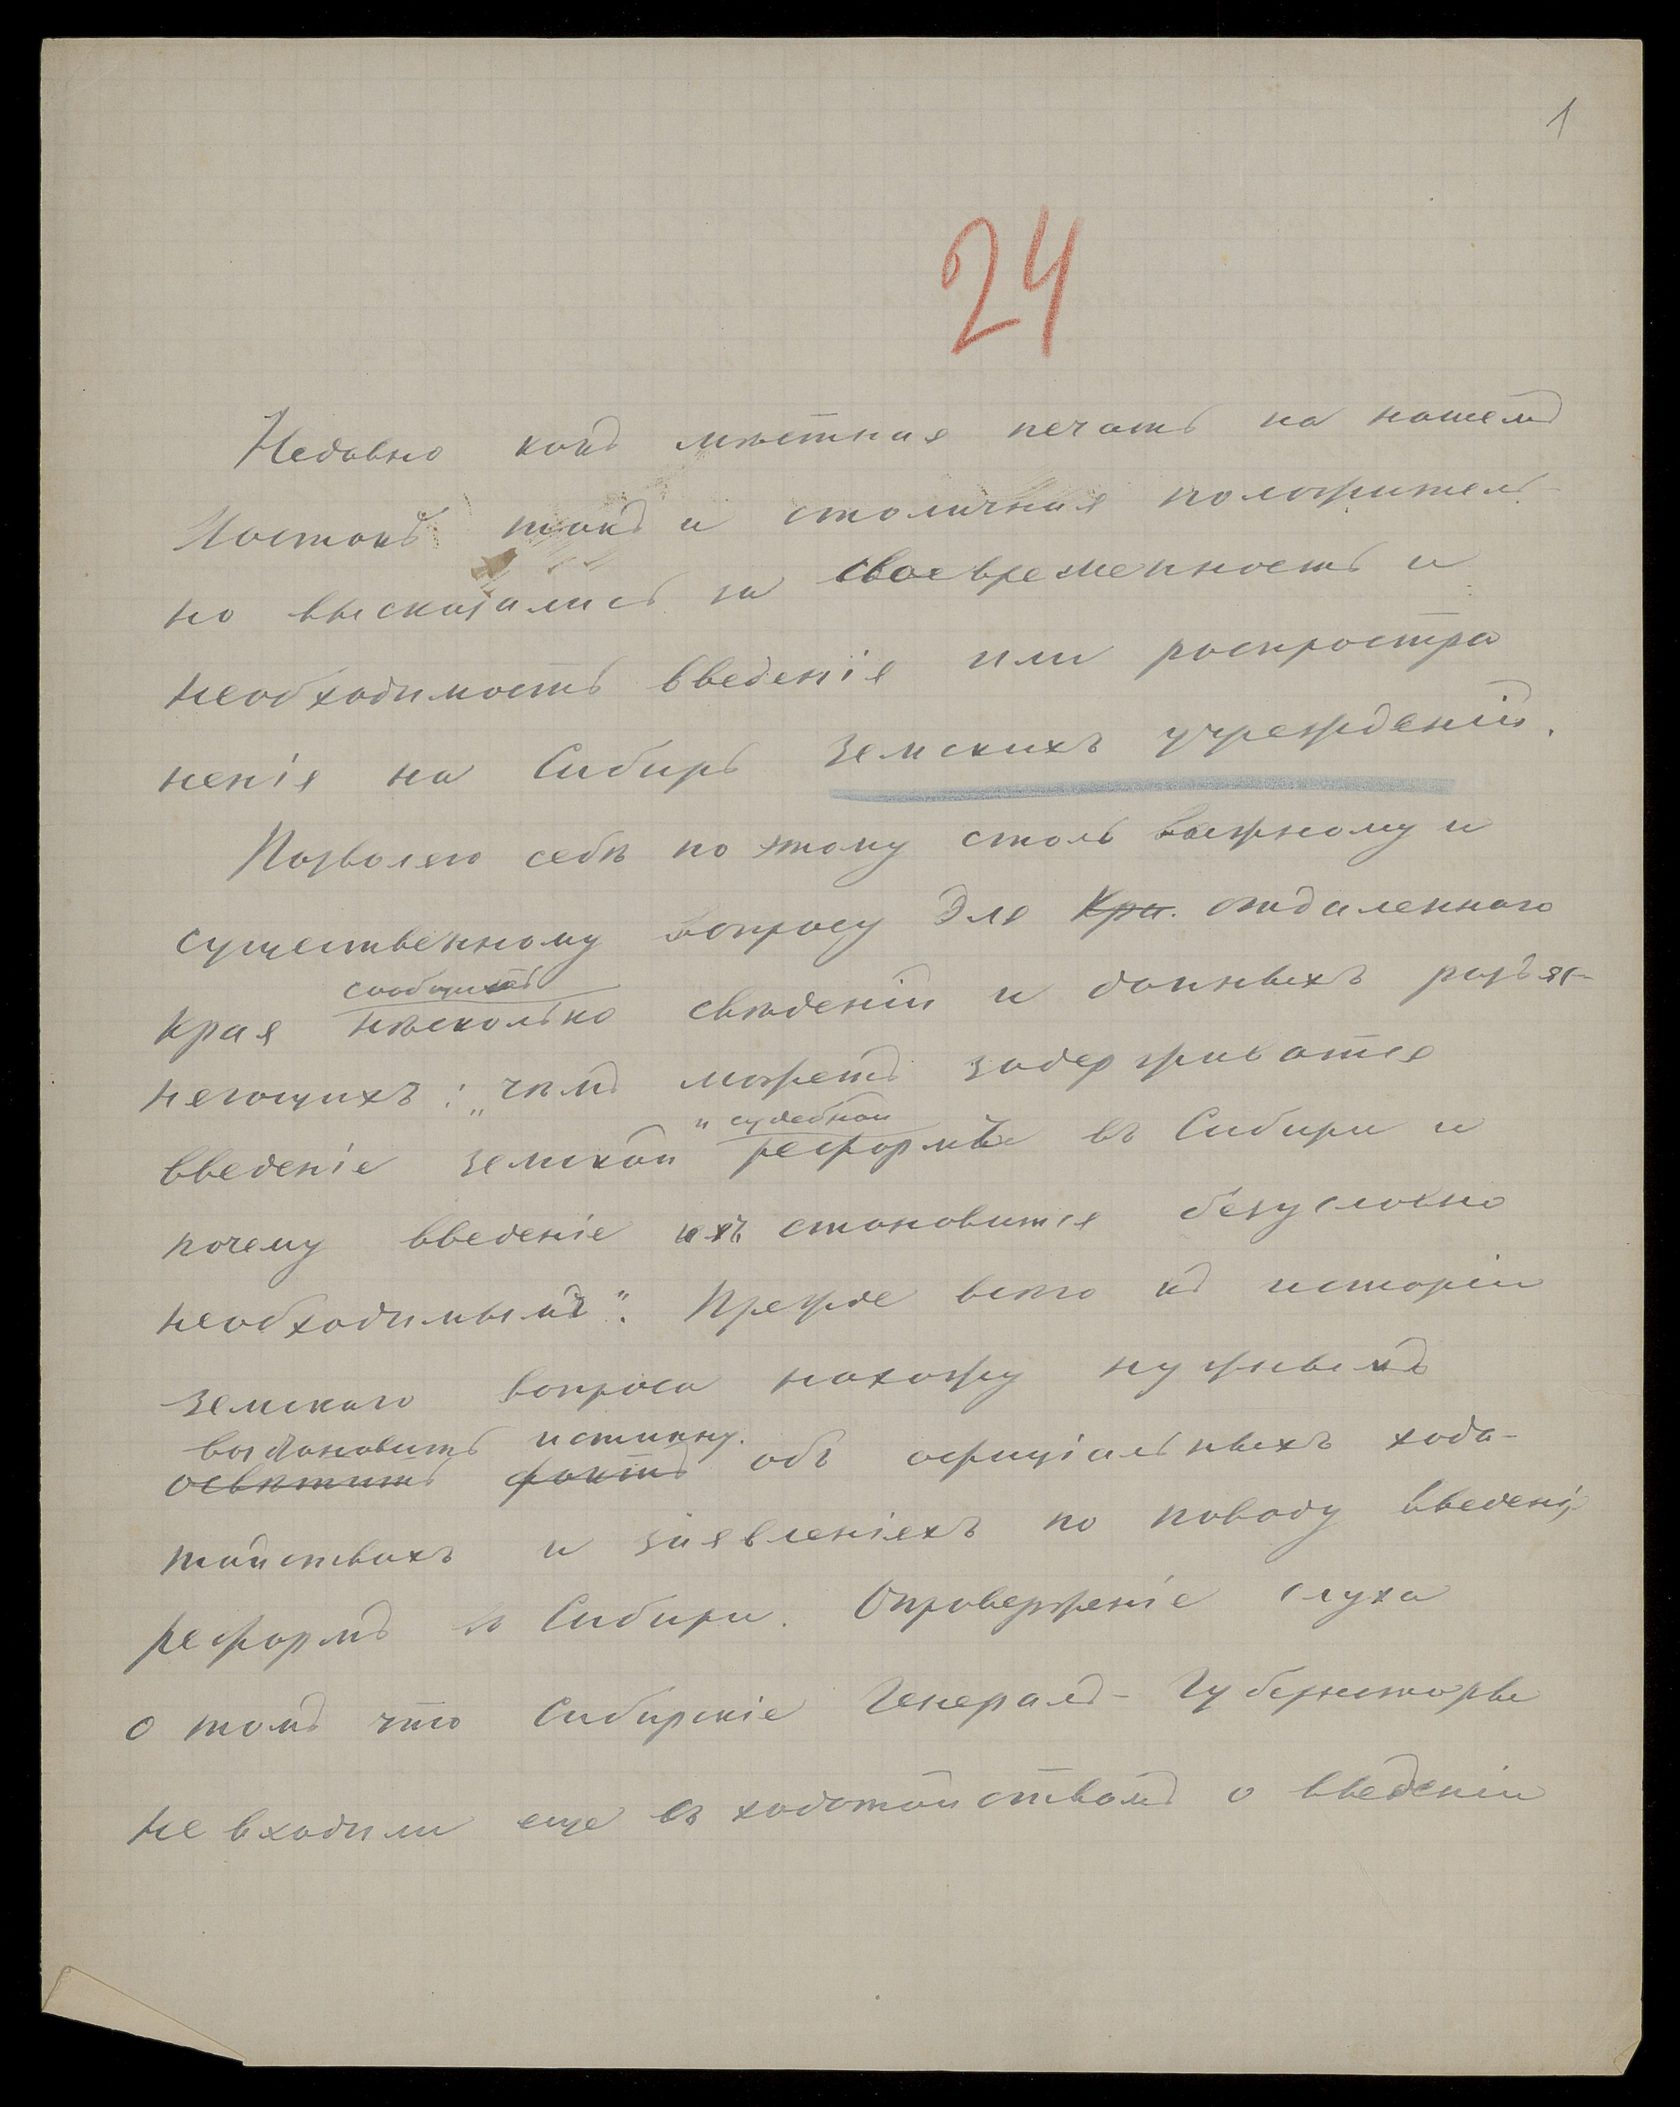 1
24
Недавно какъ мѣстная печать на нашемъ
Востокѣ такъ и столичная положитель-
но высказались за своевременность и
необходимость введенія или распростра
ненія на Сибирь земскихъ учрежденій.
Позволяю себѣ по этому столь важному и
существенному вопросу для Кра. отдаленнаго
сообщить
края нѣсколько свѣденій и данныхъ разъяс-
няющихъ: „чѣмъ можетъ задерживатся
и судебной
введеніе земской реформы въ Сибири и
почему введеніе ихъ становится безусловно
необходимымъ“. Прежде всего къ исторіи
земскаго вопроса нахожу нужнымъ
возстановить истину.
освѣтить фактъ объ офиціальныхъ хода-
тайствахъ и заявленіяхъ по поводу введенія
реформъ въ Сибири. Опроверженіе слуха
о томъ что Сибирскіе Генералъ-Губернаторы
не входили еще съ ходатайствомъ о введеніи